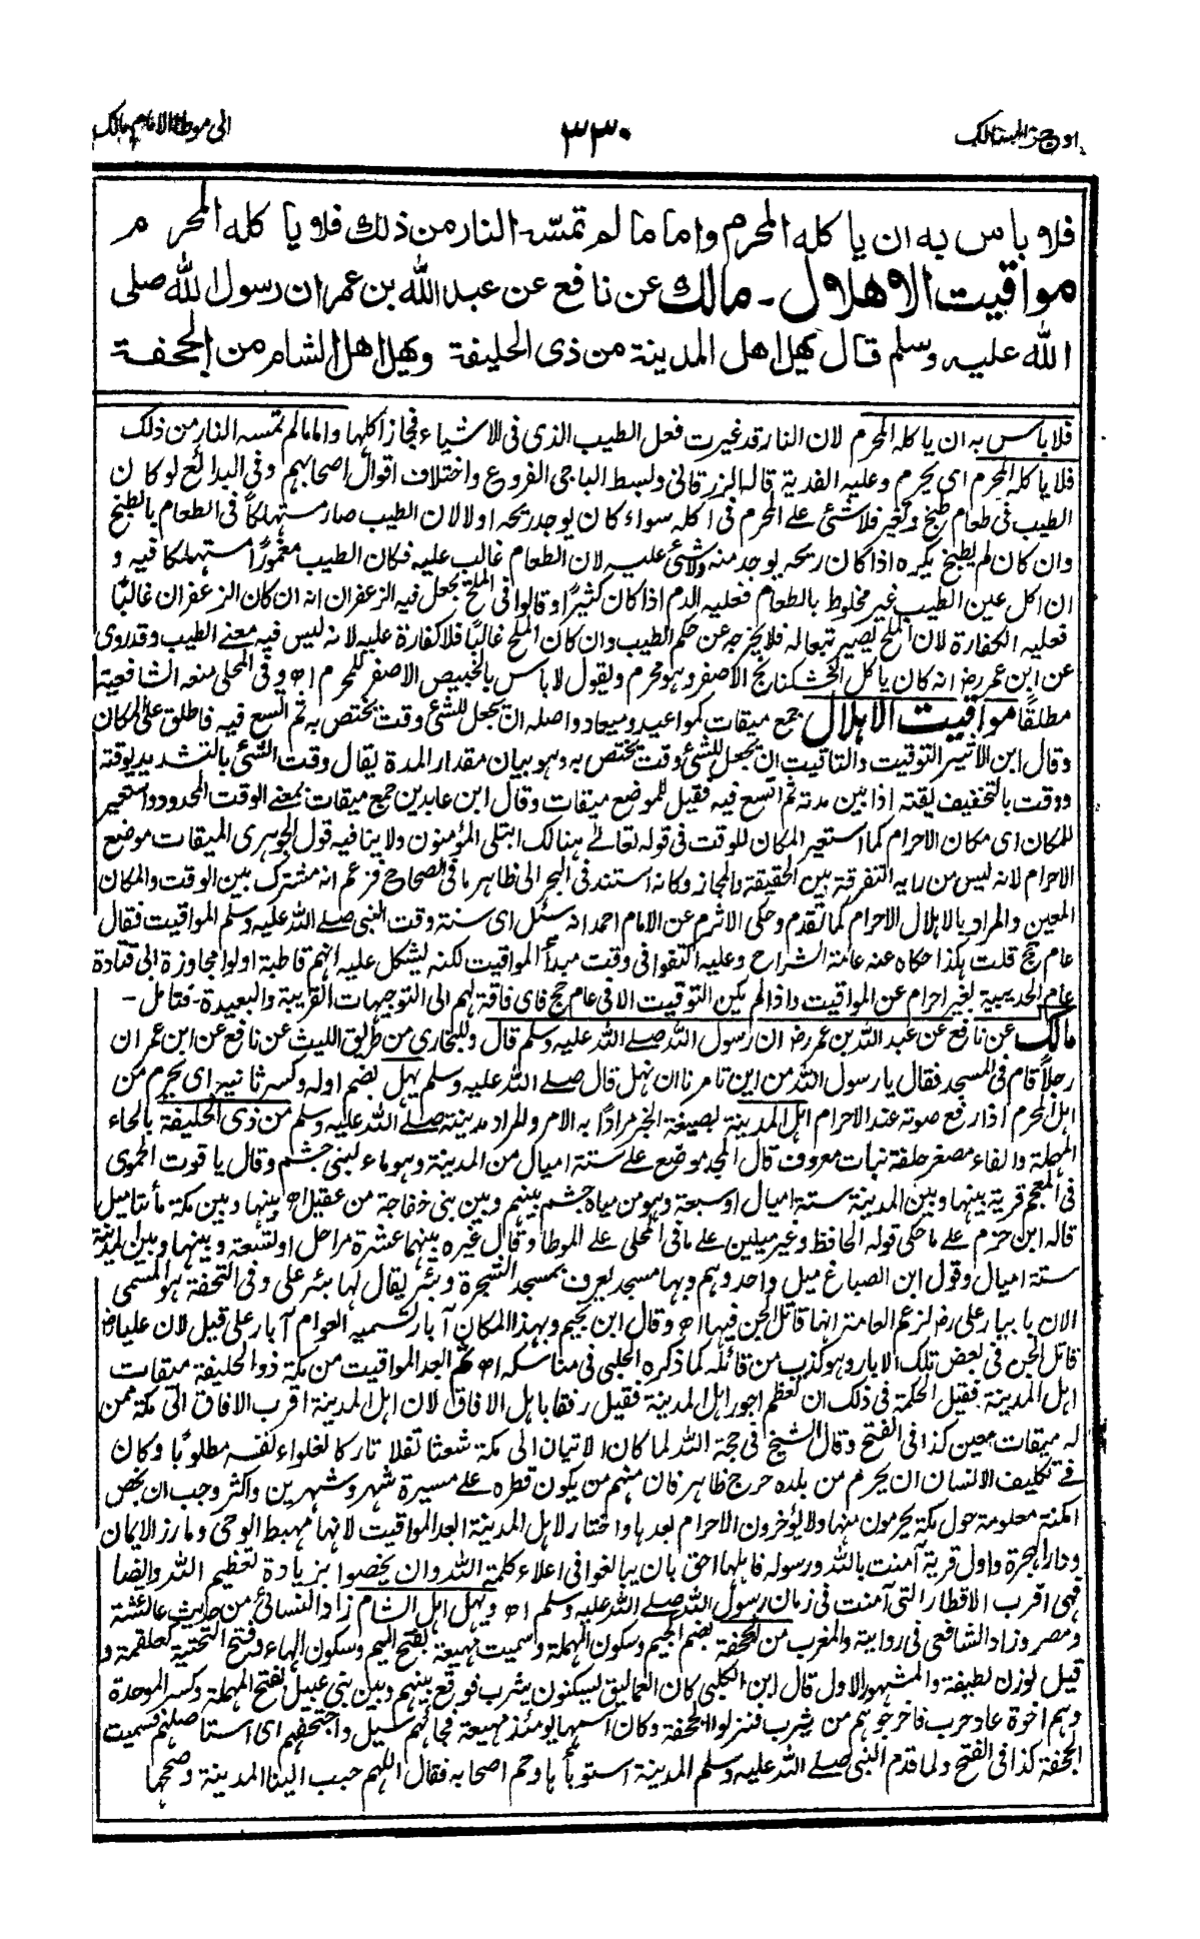 اوجز المسالك ٣٣٠ الى موطأ الامام مالك
فلا باس به ان ياكله المحرم واما ما لم تمسّه النار من ذلك فلا ياكله المحرم
مواقيت الاهلال ـ مالك عن نافع عن عبد الله بن عمر ان رسول الله صلى
الله عليه وسلم قال يهل اهل المدينة من ذى الحليفة ويهل اهل الشام من الجحفة
فلا باس به ان ياكله المحرم لان النار قد غيرت فعل الطيب الذى فى الاشياء فجاز اكلها واما ما لم تمسه النار من ذلك
فلا ياكله المحرم اى يحرم وعليه الفدية قاله الزرقانى وبسط الباجى الفروع واختلاف اقوال اصحابهم وفى البدائع لو كان
الطيب فى طعام طبخ وتغير فلا شئ على المحرم فى اكله سواء كان يوجد ريحه اولا لان الطيب صار مستهلكاً فى الطعام بالطبخ
وان كان لم يطبخ يكره اذا كان ريحه يوجد منه ولا شئ عليه لان الطعام غالب عليه فكان الطيب مغموراً مستهلكا فيه و
ان اكل عين الطيب غير مخلوط بالطعام فعليه الدم اذا كان كثيراً وقالوا فى الملح يجعل فيه الزعفران انه ان كان الزعفران غالباً
فعليه الكفارة لان الملح يصير تبعا له فلا يخرجه عن حكم الطيب وان كان الملح غالباً فلا كفارة عليه لانه ليس فيه معنى الطيب وقد روى
عن ابن عمر رض انه كان ياكل الخشكنانج الاصفر وهو محرم ويقول لا باس بالخبيص الاصفر للمحرم اه وفى المحلى منعه الشافعية
مطلقاً مواقيت الاهلال جمع ميقات كمواعيد وميعاد واصله ان يجعل للشئ وقت يختص به ثم اتسع فيه فاطلق على المكان
وقال ابن الاثير التوقيت والتاقيت ان يجعل للشئ وقت يختص به وهو بيان مقدار المدة يقال وقت الشئ بالتشديد يوقته
ووقت بالتخفيف يقته اذا بين مدته ثم اتسع فيه فقيل للموضع ميقات وقال ابن عابدين جمع ميقات بمعنى الوقت المحدود واستعير
للمكان اى مكان الاحرام كما استعير المكان للوقت فى قوله تعالى هنالك ابتلى المؤمنون ولا ينافيه قول الجوهرى الميقات موضع
الاحرام لانه ليس من رايه التفرقة بين الحقيقة والمجاز وكانه استند فى البحر الى ظاهر ما فى الصحاح فزعم انه مشترك بين الوقت والمكان
المعين والمراد بالاهلال الاحرام كما تقدم وحكى الاثرم عن الامام احمد انه سئل اى سنة وقت النبى صلى الله عليه وسلم المواقيت فقال
عام حج قلت هكذا حكاه عنه عامة الشراح وعليه اتفقوا فى وقت مبدأ المواقيت لكنه يشكل عليه انهم قاطبة اولوا مجاوزة ابى قتادة
عام الحديبية بغير احرام عن المواقيت واذا لم يكن التوقيت الا فى عام حج فاى فاقة لهم الى التوجيهات القريبة والبعيدة فتامل ـ
مالك عن نافع عن عبد الله بن عمر رض ان رسول الله صلى الله عليه وسلم قال وللبخارى من طريق الليث عن نافع عن ابن عمر ان
رجلاً قام فى المسجد فقال يا رسول الله من اين تامرنا ان نهل قال صلى الله عليه وسلم يهل بضم اوله وكسر ثانيه اى يحرم من
اهل المحرم اذا رفع صوته عند الاحرام اهل المدينة بصيغة الخبر مراداً به الامر والمراد مدينته صلى الله عليه وسلم من ذى الحليفة بالحاء
المهملة والفاء مصغر حلفة نبات معروف قال المجد موضع على ستة اميال من المدينة وهو ماء لبنى جشم وقال ياقوت الحموى
فى المعجم قرية بينها وبين المدينة ستة اميال او سبعة وهو من مياه جشم بينهم وبين بنى خفاجة من عقيل اه وبينها وبين مكة مأتا ميل
قاله ابن حزم على ما حكى قوله الحافظ وغير ميلين على ما فى المحلى على الموطا وقال غيره بينهما عشرة مراحل او تسعة وبينها وبين المدينة
ستة اميال وقول ابن الصباغ ميل واحد وهم وبها مسجد يعرف بمسجد الشجرة وبئر يقال لها بئر على وفى التحفة هو المسمى
الان بابيار على رض لزعم العامة انها قاتل الجن فيها اه وقال ابن نجيم وبهذا المكان آبار تسميه العوام آبار على قيل لان عليا رض
قاتل الجن فى بعض تلك الابار وهو كذب من قائله كما ذكره الحلبى فى مناسكه اه ثم ابعد المواقيت من مكة ذو الحليفة ميقات
اهل المدينة فقيل الحكمة فى ذلك ان تعظم اجور اهل المدينة فقيل رفقا باهل الافاق لان اهل المدينة اقرب الافاق الى مكة ممن
له ميقات معين كذا فى الفتح وقال الشيخ فى حجة الله لما كان الاتيان الى مكة شعثا تفلا تاركا لغلواء نفسه مطلوبًا وكان
فى تكليف الانسان ان يحرم من بلده حرج ظاهر فان منهم من يكون قطره على مسيرة شهر وشهرين واكثر وجب ان يخص
امكنة معلومة حول مكة يحرمون منها ولا يؤخرون الاحرام بعدها واختار لاهل المدينة ابعد المواقيت لانها مهبط الوحى ومارز الايمان
ودار الهجرة واول قرية آمنت بالله ورسوله فاهلها احق بان يبالغوا فى اعلاء كلمة الله وان يخصوا بزيادة تعظيم الله وايضا
فهى اقرب الاقطار التى آمنت فى زمان رسول الله صلى الله عليه وسلم اه ويهل اهل الشام زاد النسائى من حديث عائشة
ومصر وزاد الشافعى فى روايته والمغرب من الجحفة بضم الجيم وسكون المهملة وسميت مهيعة بفتح الميم وسكون الهاء وفتح التحتية كعلقمة و
قيل بوزن لطيفة والمشهور الاول قال ابن الكلبى كان العماليق يسكنون يثرب فوقع بينهم وبين بنى عبيل بفتح المهملة وكسر الموحدة
وهم اخوة عاد حرب فاخرجوهم من يثرب فنزلوا الجحفة وكان اسمها يومئذ مهيعة فجائهم سيل واجتحفهم اى استاصلهم فسميت
الجحفة كذا فى الفتح ولما قدم النبى صلى الله عليه وسلم المدينة استوبأها وحم اصحابه فقال اللهم حبب الينا المدينة وصححها